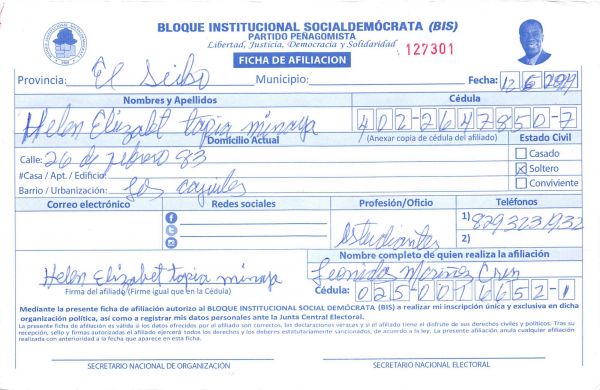 BLOQUE INSTITUCIONAL SOCIALDEMÓCRATA (BIS)
PARTIDO PEÑAGOMISTA
Libertad, Justicia, Democracia y Solidaridad
127301
FICHA DE AFILIACION
Provincia: El Seibo Municipio: Fecha: 12 6
Nombres y Apellidos Cédula
Helen Elizabet tapia minaya 402-2647850-7
Domicilio Actual (Anexar copia de cédula del afiliado) Estado Civil
Calle: 26 de febrero 83 Casado
#Casa / Apt. / Edificio: Soltero
Barrio / Urbanización: Los Conviviente
Correo electrónico Redes sociales Profesión/Oficio Teléfonos
estudiantes 1) 829 323 1932
2)
Nombre completo de quien realiza la afiliación
Helen Elizabet tapia minaya Leonidas
Firma del afiliado (Firme igual que en la Cédula) Cédula: 025-0016652-1
Mediante la presente ficha de afiliación autorizo al BLOQUE INSTITUCIONAL SOCIAL DEMÓCRATA (BIS) a realizar mi inscripción única y exclusiva en dicha
organización política, así como a registrar mis datos personales ante la Junta Central Electoral.
La presente ficha de afiliación es válida si los datos ofrecidos por el afiliado son correctos, las declaraciones veraces y si el afiliado tiene el disfrute de sus derechos civiles y políticos. Tras su
recepción, sello y firmas autorizadas el afiliado ejercerá todos los derechos y los deberes estatutariamente sancionados, de acuerdo a la ley. La presente afiliación anula cualquier afiliación
realizada con anterioridad a la fecha que aparece en esta ficha.
SECRETARIO NACIONAL DE ORGANIZACIÓN SECRETARIO NACIONAL ELECTORAL